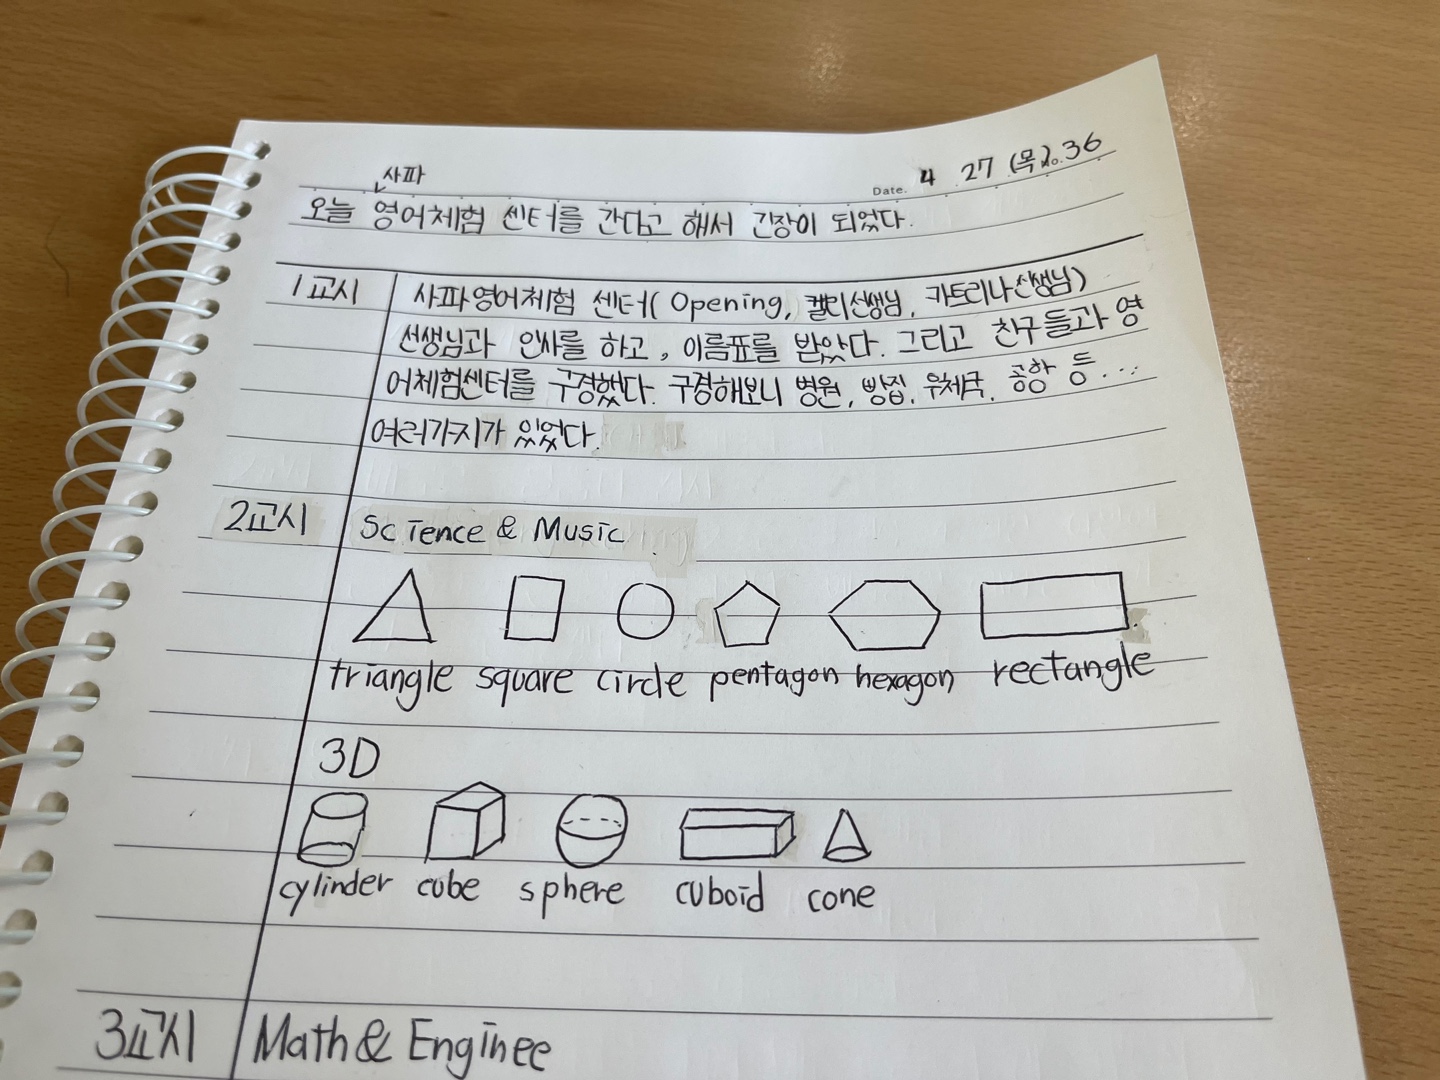 Date. 4 27 (목) No. 36
사파
오늘 영어체험 센터를 간다고 해서 긴장이 되었다.
1교시 사파영어체험 센터( Opening, 켈리선생님, 카트리나선생님)
선생님과 인사를 하고, 이름표를 받았다. 그리고 친구들과 영
어체험센터를 구경했다. 구경해보니 병원, 빵집, 우체국, 공항 등...
여러가지가 있었다.
2교시 Science & Music
triangle square circle pentagon hexagon rectangle
3D
cylinder cube sphere cuboid cone
3교시 Math & Enginee